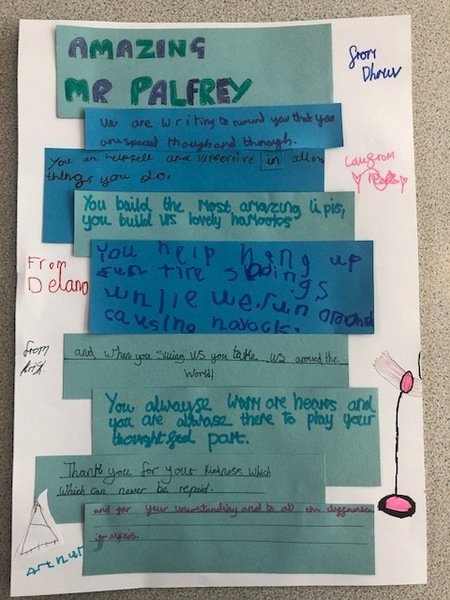 AMAZING
MR PALFREY
from
Dhruv
We are writing to remind you that you
are special though and through.
You are helpfell and supportive in all
things you do.
Love from
You baild the most amazing tipis,
you build us lovely hamocks
You help hang up
fun tire swings
From
Delano
while we run around
causing havock.
from
and when you swing us you take us around the
World!
You alwayse warm are hearts and
you are alwase there to play your
thoughtfeel part.
Thank you for your kindness which
which can never be repaid.
and for your understanding and to all the difference
it makes.
Arthur